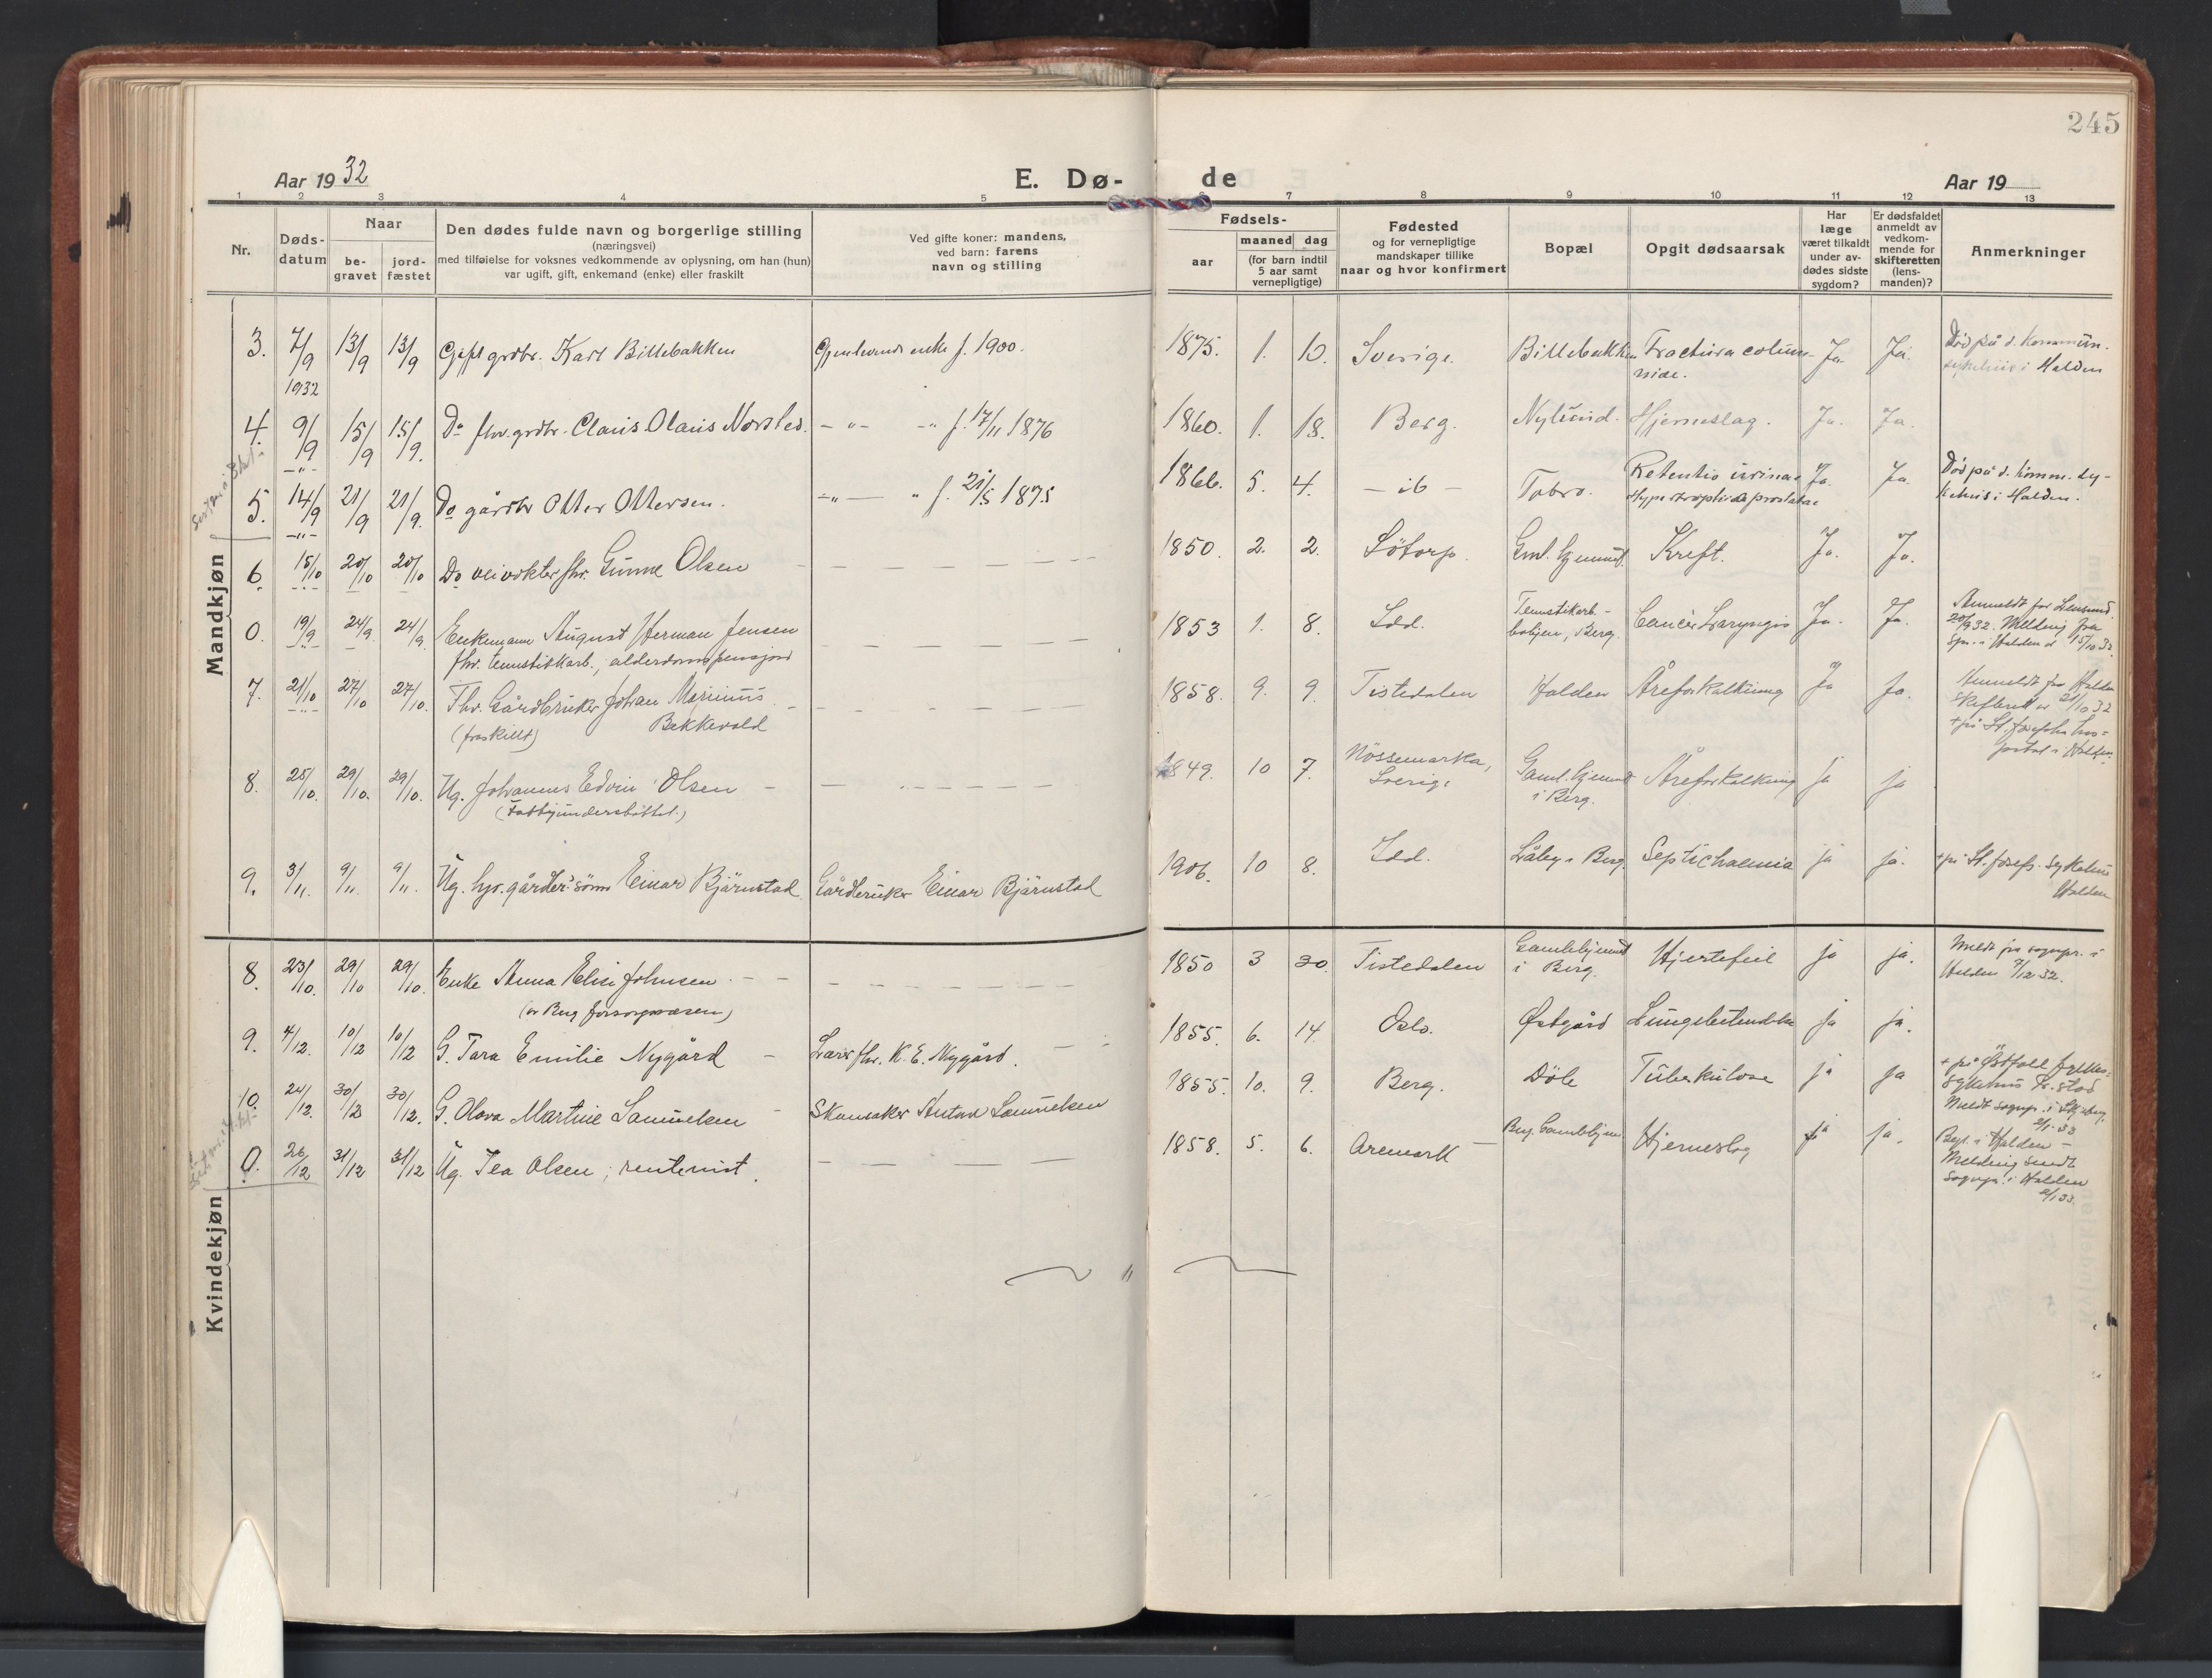 245
Aar 1932
E. Dø-
de
Aar 19
1 2 3 4 5 6 7 8 9 10 11 12 13
Nr.
Døds-
datum
Naar
be-
gravet
jord-
fæstet
Den dødes fulde navn og borgerlige stilling
(næringsvei)
med tilføielse for voksnes vedkommende av oplysning, om han (hun)
var ugift, gift, enkemand (enke) eller fraskilt
Ved gifte koner: mandens,
ved barn: farens
navn og stilling
Fødsels-
aar
maaned dag
(for barn indtil
5 aar samt
vernepligtige)
Fødested
og for vernepligtige
mandskaper tillike
naar og hvor konfirmert
Bopæl
Opgit dødsaarsak
Har
læge
været tilkaldt
under av-
dødes sidste
sygdom?
Er dødsfaldet
anmeldt av
vedkom-
mende for
skifteretten
(lens-
manden)?
Anmerkninger
Mandkjøn
3. 7/9 13/9 13/9 Gift grdbr. Karl Billebakken Gjenlevende enke f. 1900. 1875. 1. 10. Sverige. Billebakken Fractura colum- Ja. Ja. Død på d. kommun.
1932 sykehus i Halden
4. 9/9 15/9 15/9. Do fhv. grdbr. Claus Olaus Norsted. -"- -"- f. 17/11 1876 1860. 1. 18. Berg. Nylund. Hjerneslag. Ja. Ja.
5. 14/9 21/9 21/9. Do gårdbr Otter Ottersen. -"- " f. 21/5 1875 1866. 5. 4. - ib - Tobro. Retentio urinae Ja. Ja. Død på d. komm. sy-
Hypertrophia prostatae kehus i Halden.
6. 15/10 20/10 20/10 Do veivokter fhv. Gunne Olsen 1850. 2. 2. Søtorp. Gml. Gjemund. Kreft. Ja. Ja.
0. 19/9 24/9. 24/9 Enkemann August Herman Jensen 1853 1. 8. Idd. Cancer Laryngis Ja. Ja. Anmeldt for Lensmd.
fhv. fennstikkarb., alderdomspensjon , Berg. 20/9 32. Melding fra
Spr. i Halden av 15/10 32.
7. 21/10 27/10 27/10. Fhv. Gårdbruker Johan Marinius 1858. 9. 9. Tistedalen Halden Åreforkalkning Ja Ja. Anmeldt fra Halden
(fraskilt) Bekkevold skifterett av 21/10 32
+ på St. Josephs hos-
pital i Halden.
8. 25/10. 29/10. 29/10. Ug. Johannes Edvin Olsen 1849. 10 7. Nössemarka, Gaml. Gjemund Åreforkalkning ja ja
(Fattigunderstøttet.) Sverige i Berg.
9. 3/11. 9/11. 9/11. Ug. hjv. gårdbr. sønn Einar Bjärnstad Gårdbruker Einar Bjärnstad 1906. 10 8. Idd. Låby i Berg. Septichaemia ja ja. + på St. Josefs. Sykehus
Halden
Kvindekjøn
8. 23/10. 29/10 29/10. Enke Anna Elise Johnsen 1850 3 30. Tistedalen Gamlehjemmet Hjertefeil ja ja. Meldt fra sognepr. i
(av Berg forsorgsvæsen) i Berg. Halden 7/12 32.
9. 4/12. 10/12 10/12 G. Tara Emilie Nygård Lærer fhv. K. E. Nygård. 1855. 6. 14. Oslo. Østgård Lungebetendelse ja ja.
10. 24/12. 30/12 30/12. G. Olava Martine Samuelsen Skomaker Anton Samuelsen 1855. 10. 9. Berg. Döle Tuberkulose ja ja + på Östfold fylkes-
sykehus Fr.stad
Meldt sognepr. i Skjeberg
2/1 33
0. 26/12 31/12 31/12 Ug. Tea Olsen; rentenist. 1858. 5. 6. Aremark Berg. Gamlehjem Hjerneslag ja ja. Begr. i Halden -
Melding sendt
sognepr. i Halden
2/1 33.